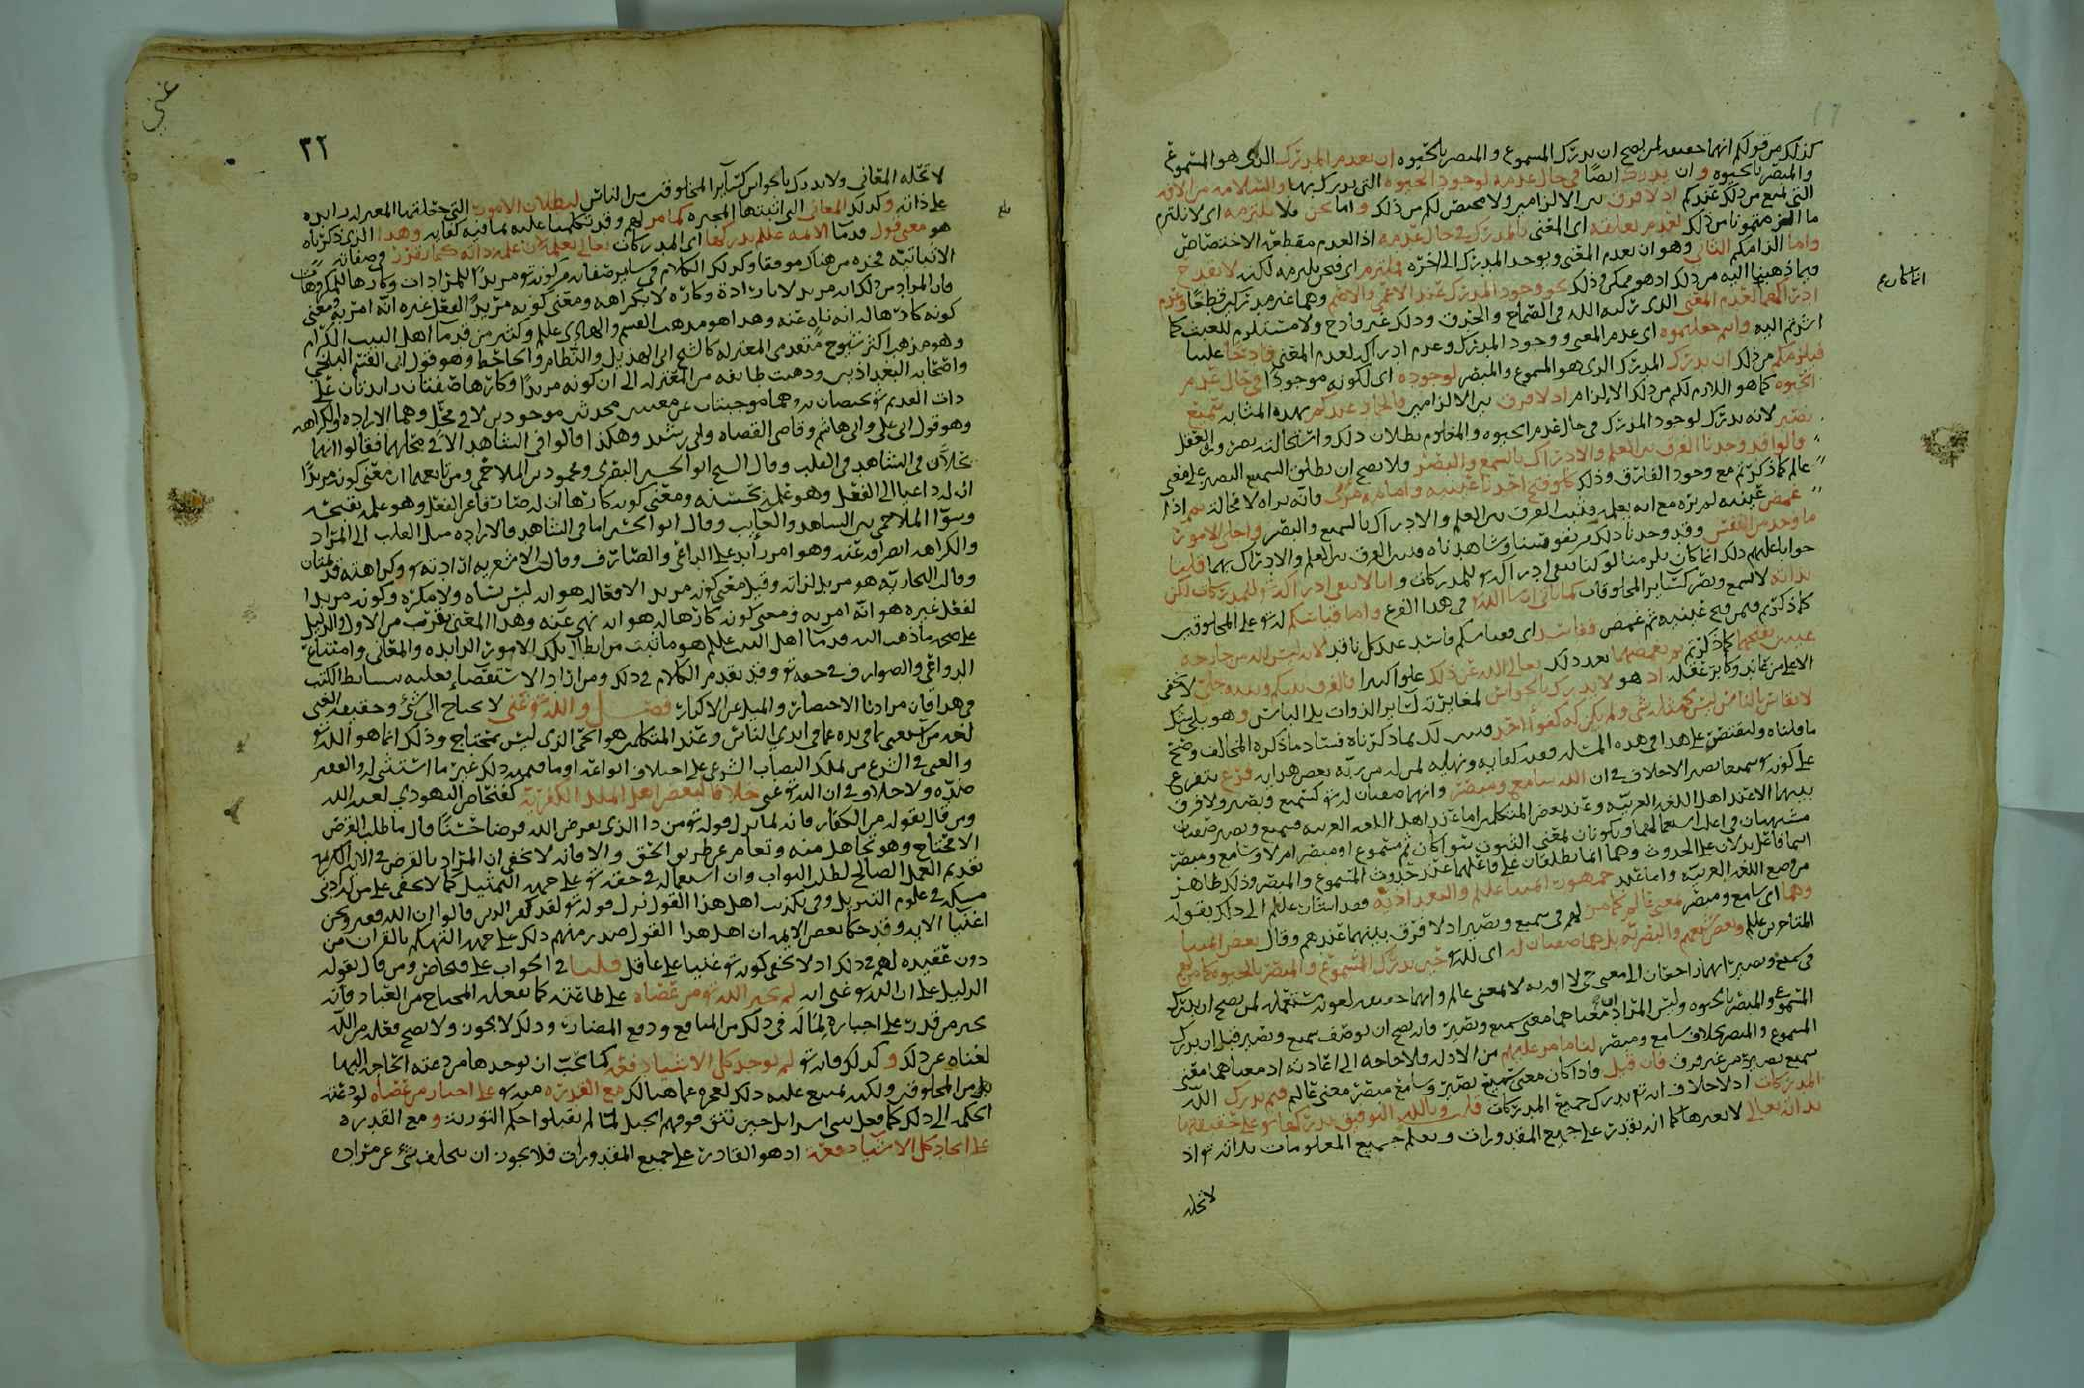 كذلك من قولكم انهما حقيقة لمن يصح ان يدرك المسموع والمبصر بالحيوه ان يعدم المدرك الذي هو المسموع
والمبصر بالحيوه وان يدرك ايضا في حال عدمه لوجود الحيوه التي يدرك بها والسلامه من الافه
التي تمنع من ذلك عندكم اذ لا فرق بين الالزامين ولا محيص لكم من ذلك واما نحن فلا نلتزمه اي لا نلتزم
ما الزمتمونا من ذلك لعدم تعلقه اي المعنى بالمدرك في حال عدمه اذ العدم مقطعة الاختصاص
واما الزامكم الثاني وهو ان يعدم المعنى ويوجد المدرك الى اخره فملتزم اي فنحن نلتزمه لكنه لا يقدح
فيما ذهبنا اليه من ذلك اذ هو ممكن وذلك نحو وجود المدرك عند الاعمى والاصم وهما غير مدركين قطعا وعدم
ادراكهما لعدم المعنى الذي ركبه الله في الصماخ والحدق وذلك غير قادح ولا مستلزم للعبث كما
اشرتم اليه وانتم جعلتموه اي عدم المعنى ووجود المدرك وعدم ادراكه لعدم المعنى قادحا علينا
فيلزمكم من ذلك ان يدرك المدرك الذي هو المسموع والمبصر لوجوده اي لكونه موجودا في حال عدم
الحيوه كما هو اللازم لكم من ذلك الالزام اذ لا فرق بين الالزامين فالجماد عندكم بهذه المثابه سميع
بصير لانه يدرك لوجود المدرك في حال عدم الحيوه والمعلوم بطلان ذلك واستحالته بضرورة العقل
قالوا قد وجدنا الفرق بين العلم والادراك بالسمع والبصر ولا يصح ان يطلق السميع البصير على معنى
عالم كما ذكرتم مع وجود الفارق وذلك كما لو فتح احدنا عينيه وامامه مرئي فانه يراه لا محالة ثم اذا
غمض عينيه لم يره مع انه يعلمه فثبت الفرق بين العلم والادراك بالسمع والبصر واجلى الامور
ما وجد من النفس وقد وجدنا ذلك من نفوسنا وشاهدناه فثبت الفرق بين العلم والادراك بهما قلنا
جوابا عليهم ذلك انما كان يلزمنا لو كنا ننفي ادراك الله للمدركات وانا لا ننفي ادراك الله للمدركات لكن
بذاته لا بسمع وبصر كسائر المخلوقات كما يأتي ان شاء الله في هذا الفرع واما قياسكم لله على المخلوقين
كما ذكرتم فيمن فتح عينيه ثم غمض ففاسد اي فقياسكم فاسد عند كل ناقد لان ليس الله من جارحه
عينين يفتحهما كما ذكرتم ثم يغمضهما بعد ذلك تعالى الله عن ذلك علوا كبيرا فالفرق بينكم وبينه جلي لا يخفى
الا على من عاند وكابر عقله اذ هو لا يدرك بالحواس لمغايرته لسائر الذوات
لا يقاس بالناس ليس كمثله شيء ولم يكن له كفوا احد فثبت لك بما ذكرناه فساد ما ذكره المخالف وصح
ما قلناه
على كونه سميعا بصيرا الاختلاف في ان الله سامع ومبصر وانهما صفتان لله كسميع وبصير ولا فرق
بينهما الا عند اهل اللغه العربيه وعند بعض المتكلمين اما عند اهل اللغه العربيه فسميع وبصير صفتان
اسما فاعل يدلان على الحدوث وهما انما يطلقان على فاعلهما عند حدوث المسموع والمبصر وذلك ظاهر
من وضع اللغه العربيه واما عند جمهور ائمتنا عليهم والبغداديه
وهما اي سامع ومبصر بمعنى عالم كما مر لهم في سميع وبصير اذ لا فرق بينهما عندهم وقال بعض ائمتنا
المسموع والمبصر بخلاف سامع ومبصر لنا ما مر عليهم من الادله ولا حاجه الى اعادته اذ معناهما معنى
سميع بصير من غير فرق فان قيل واذا كان معنى سميع بصير وسامع مبصر معنى عالم فبم يدرك الله
المدركات اذ لا خلاف انه تعالى يدرك جميع المدركات قلت وبالله التوفيق يدركها على حقيقتها
بذاته تعالى لا بغيرها كما انه يقدر على جميع المقدورات ويعلم جميع المعلومات بذاته اذ
لا تحله
غني
٣٢
لا تحله المعاني ولا يدرك بالحواس كسائر المخلوقين من الناس لبطلان الامور التي جعلتها المعتزله زايده
على ذاته وكذلك المعاني التي اثبتها المجبره كما مر لهم وقد تكلمنا عليه بما فيه كفايه وهذا الذي ذكرناه
هو معنى قول قدماء الائمه عليهم يدركها اي المدركات تعالى بعلمه لان علمه ذاته كما تقرر في صفاته
الاثباتيه فخذه من هناك موفقا وكذلك الكلام في سائر صفاته من كونه مريدا للمرادات وكارها للمكروهات
فان المراد من ذلك انه مريد لا بارادة وكاره لا بكراهه ومعنى كونه مريدا لفعل غيره انه امر به ومعنى
كونه كارها له انه ناه عنه وهذا هو مذهب القسم والهادي عليلم وكثير من قدماء اهل البيت الكرام
وهو مذهب اكثر شيوخ متقدمي المعتزله كالشيخ ابي الهذيل والنظام والجاحظ وهو قول ابي القسم البلخي
واصحابه البغداذيين وذهبت طائفه من المعتزله الى ان كونه مريدا وكارها صفتان زايدتان على
ذات القديم موجبتان عن معنيين محدثين موجودين لا في محل وهما الاراده والكراهه
وهو قول ابي علي وابي هاشم وقاضي القضاه وابي رشيد وهكذا قالوا في الشاهد الا في محلهما فقالوا انهما
يحلان في الشاهد في القلب وقال الشيخ ابو الحسين البصري ومحمود بن الملاحمي ومن تابعهما ان معنى كونه مريدا
ان له داعيا الى الفعل وهو علمه بحسنه ومعنى كونه كارها ان له صارفا عن الفعل وهو علمه بقبحه
وسوا الملاحمي بين الشاهد والغايب وقال ابو الحسين اما في الشاهد فالاراده ميل القلب الى المراد
والكراهه انصرافه عنه وهو امر زايد على الداعي والصارف وقالت الاشعريه ارادته وكراهته قديمتان
وقالت النجاريه هو مريد لذاته وقيل معنى كونه مريدا لافعاله هو انه ليس بساه ولا مكره وكونه مريدا
لفعل غيره هو انه امر به ومعنى كونه كارها له هو انه نهى عنه وهذا المعنى يقرب من الاول والدليل
على صحه ما ذهب اليه قدماء اهل البيت عليلم هو ما ثبت من ابطال تلك الامور الزايده والمعاني وامتناع
الدواعي والصوارف في حقه وقد تقدم الكلام في ذلك ومن اراد الاستقصاء فعليه ببسائط الكتب
في هذا فان مرادنا الاختصار والميل عن الاكثار فصل والله غني لا يحتاج الى شيء وحقيقة الغني
لغه من استغنى بما في يده عما في ايدي الناس وعند المتكلمين هو الحي الذي ليس بمحتاج وذلك انما هو الله
والغني في الشرع من ملك النصاب الشرعي على اختلاف انواعه او ما قيمته ذلك غير ما استثني له والفقير
ضده ولا خلاف في ان الله غني خلافا لبعض اهل الملل الكفريه كفنحاص اليهودي لعنه الله
ومن قال بقوله من الكفار فانه لما نزل قوله من ذا الذي يقرض الله قرضا حسنا قال ما طلب القرض
الا محتاج وهو تجاهل منه وتعام عن طريق الحق والا فانه لا يخفى ان المراد بالقرض في الايه الكريمه
تقديم العمل الصالح لطلب الثواب وان استعماله في حقه على جهه التمثيل كما لا يخفى على من له ادنى
مسكه في علوم التنزيل وفي تكذيب اهل هذا القول نزل قوله لقد كفر الذين قالوا ان الله فقير ونحن
اغنيا الايه وقد حكا بعض الائمه ان اهل هذا القول صدر منهم ذلك على جهه التهكم بالقران من
دون عقيده لهم في ذلك اذ لا يخفى كونه غنيا على عاقل قلنا في الجواب على فنحاص ومن قال بقوله
الدليل على ان الله غني انه لم يجبر الله من عصاه على طاعته كما يفعله المحتاج من العباد فانه
يجبر من قدر على اجباره لما له في ذلك من المنافع ودفع المضار وذلك لا يجوز ولا يصح فعله من الله
لغناه عن ذلك وكذلك فانه لم يوجد كل الاشياء دفعة كما يجب ان يوجدها من دعته الحاجه اليها
من المخلوقين ولكن يمنع عليه ذلك لعجزه عما هنالك مع القدره منه على اجبار من عصاه لو دعته
الحكمه الى ذلك كما فعل ببني اسرائيل حين نتق فوقهم الجبل لما لم يقبلوا احكام التوريه ومع القدره
على ايجاد كل الاشياء دفعة اذ هو القادر على جميع المقدورات فلا يجوز ان يتخلف شيء عن مراده